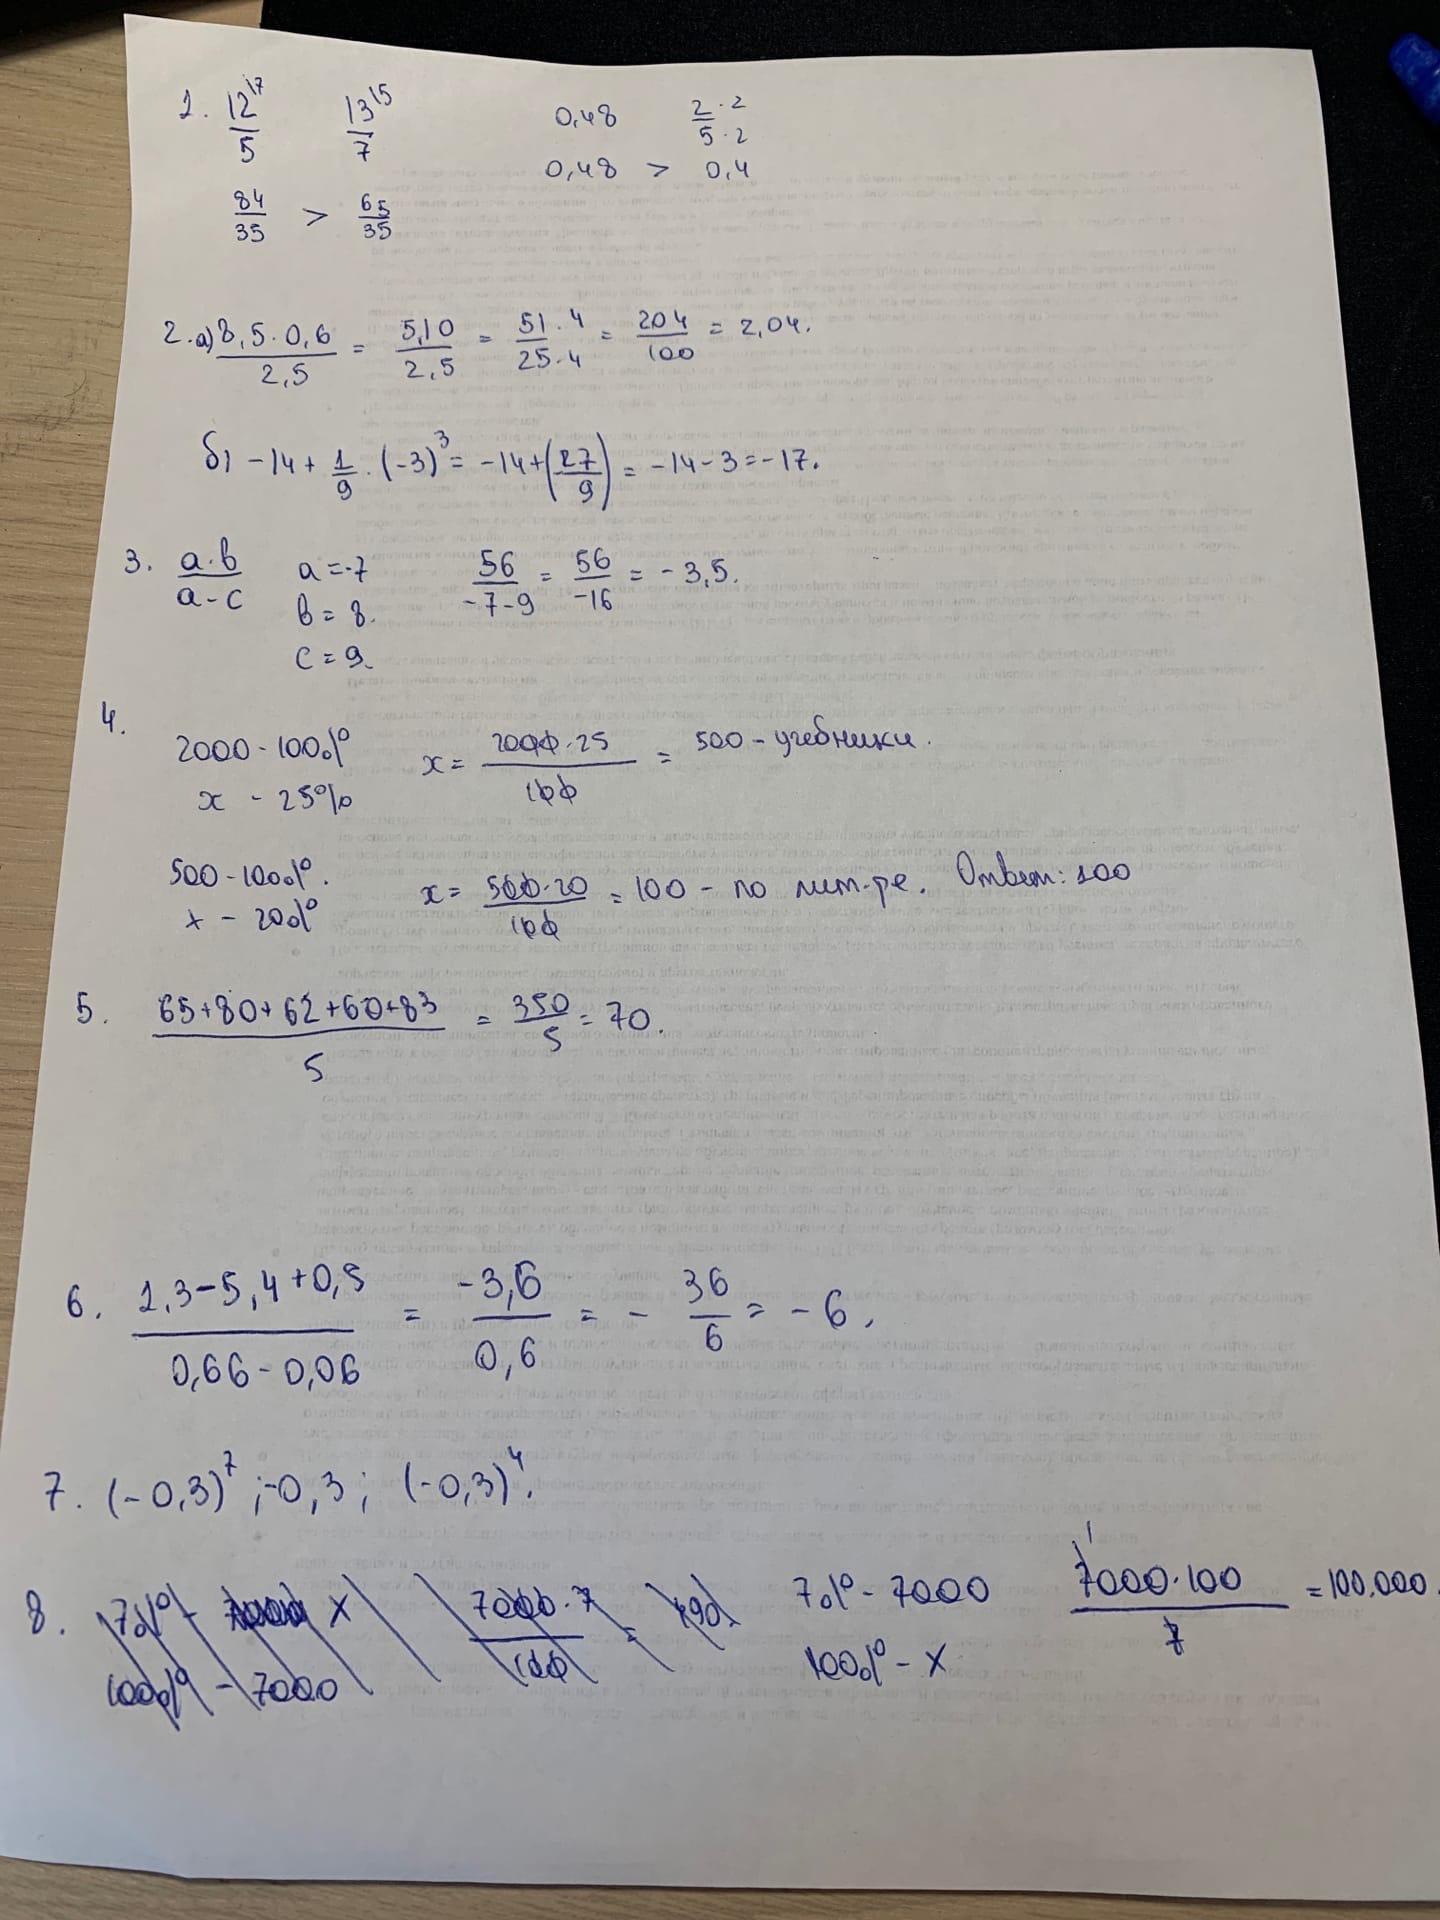 1. 12\7/5 13\5/7 0,48 2·2/5·2
84/35 > 65/35 0,48 > 0,4
2. а) 8,5·0,6/2,5 = 5,10/2,5 = 51·4/25·4 = 204/100 = 2,04.
б) -14 + 1/9 · (-3)³ = -14 + (27/9) = -14 - 3 = -17.
3. a·b/a-c a = -7 56/-7-9 = 56/-16 = -3,5.
b = 8.
c = 9.
4.
2000 - 100% x = 2000·25/100 = 500 - учебники.
x - 25%
500 - 100%. x = 500·20/100 = 100 - по лит-ре. Ответ: 100
x - 20%
5. 65+80+62+60+83/5 = 350/5 = 70.
6. 1,3-5,4+0,5/0,66-0,06 = -3,6/0,6 = - 36/6 = -6.
7. (-0,3)⁷; -0,3; (-0,3)⁴.
8. 7% - 7000 x 7000·7/100 = 490 7% - 7000 7000·100/7 = 100.000.
100% - 7000 100% - x